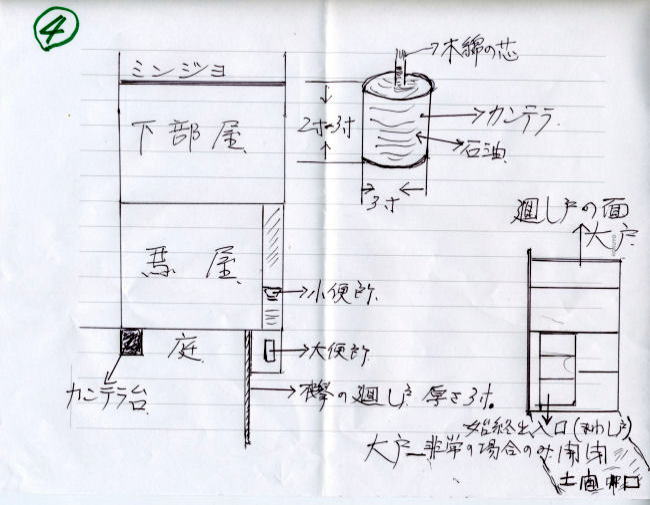 4
ミンジョ
木綿の芯
下部屋
2寸~3寸
カンテラ
石油
3寸
廻し戸の面
大戸
馬屋
小便所
庭
大便所
カンテラ台
欅の廻し戸 厚さ3寸。
始終出入口(和し戸)
大戸―非常の場合のみ開閉
土間